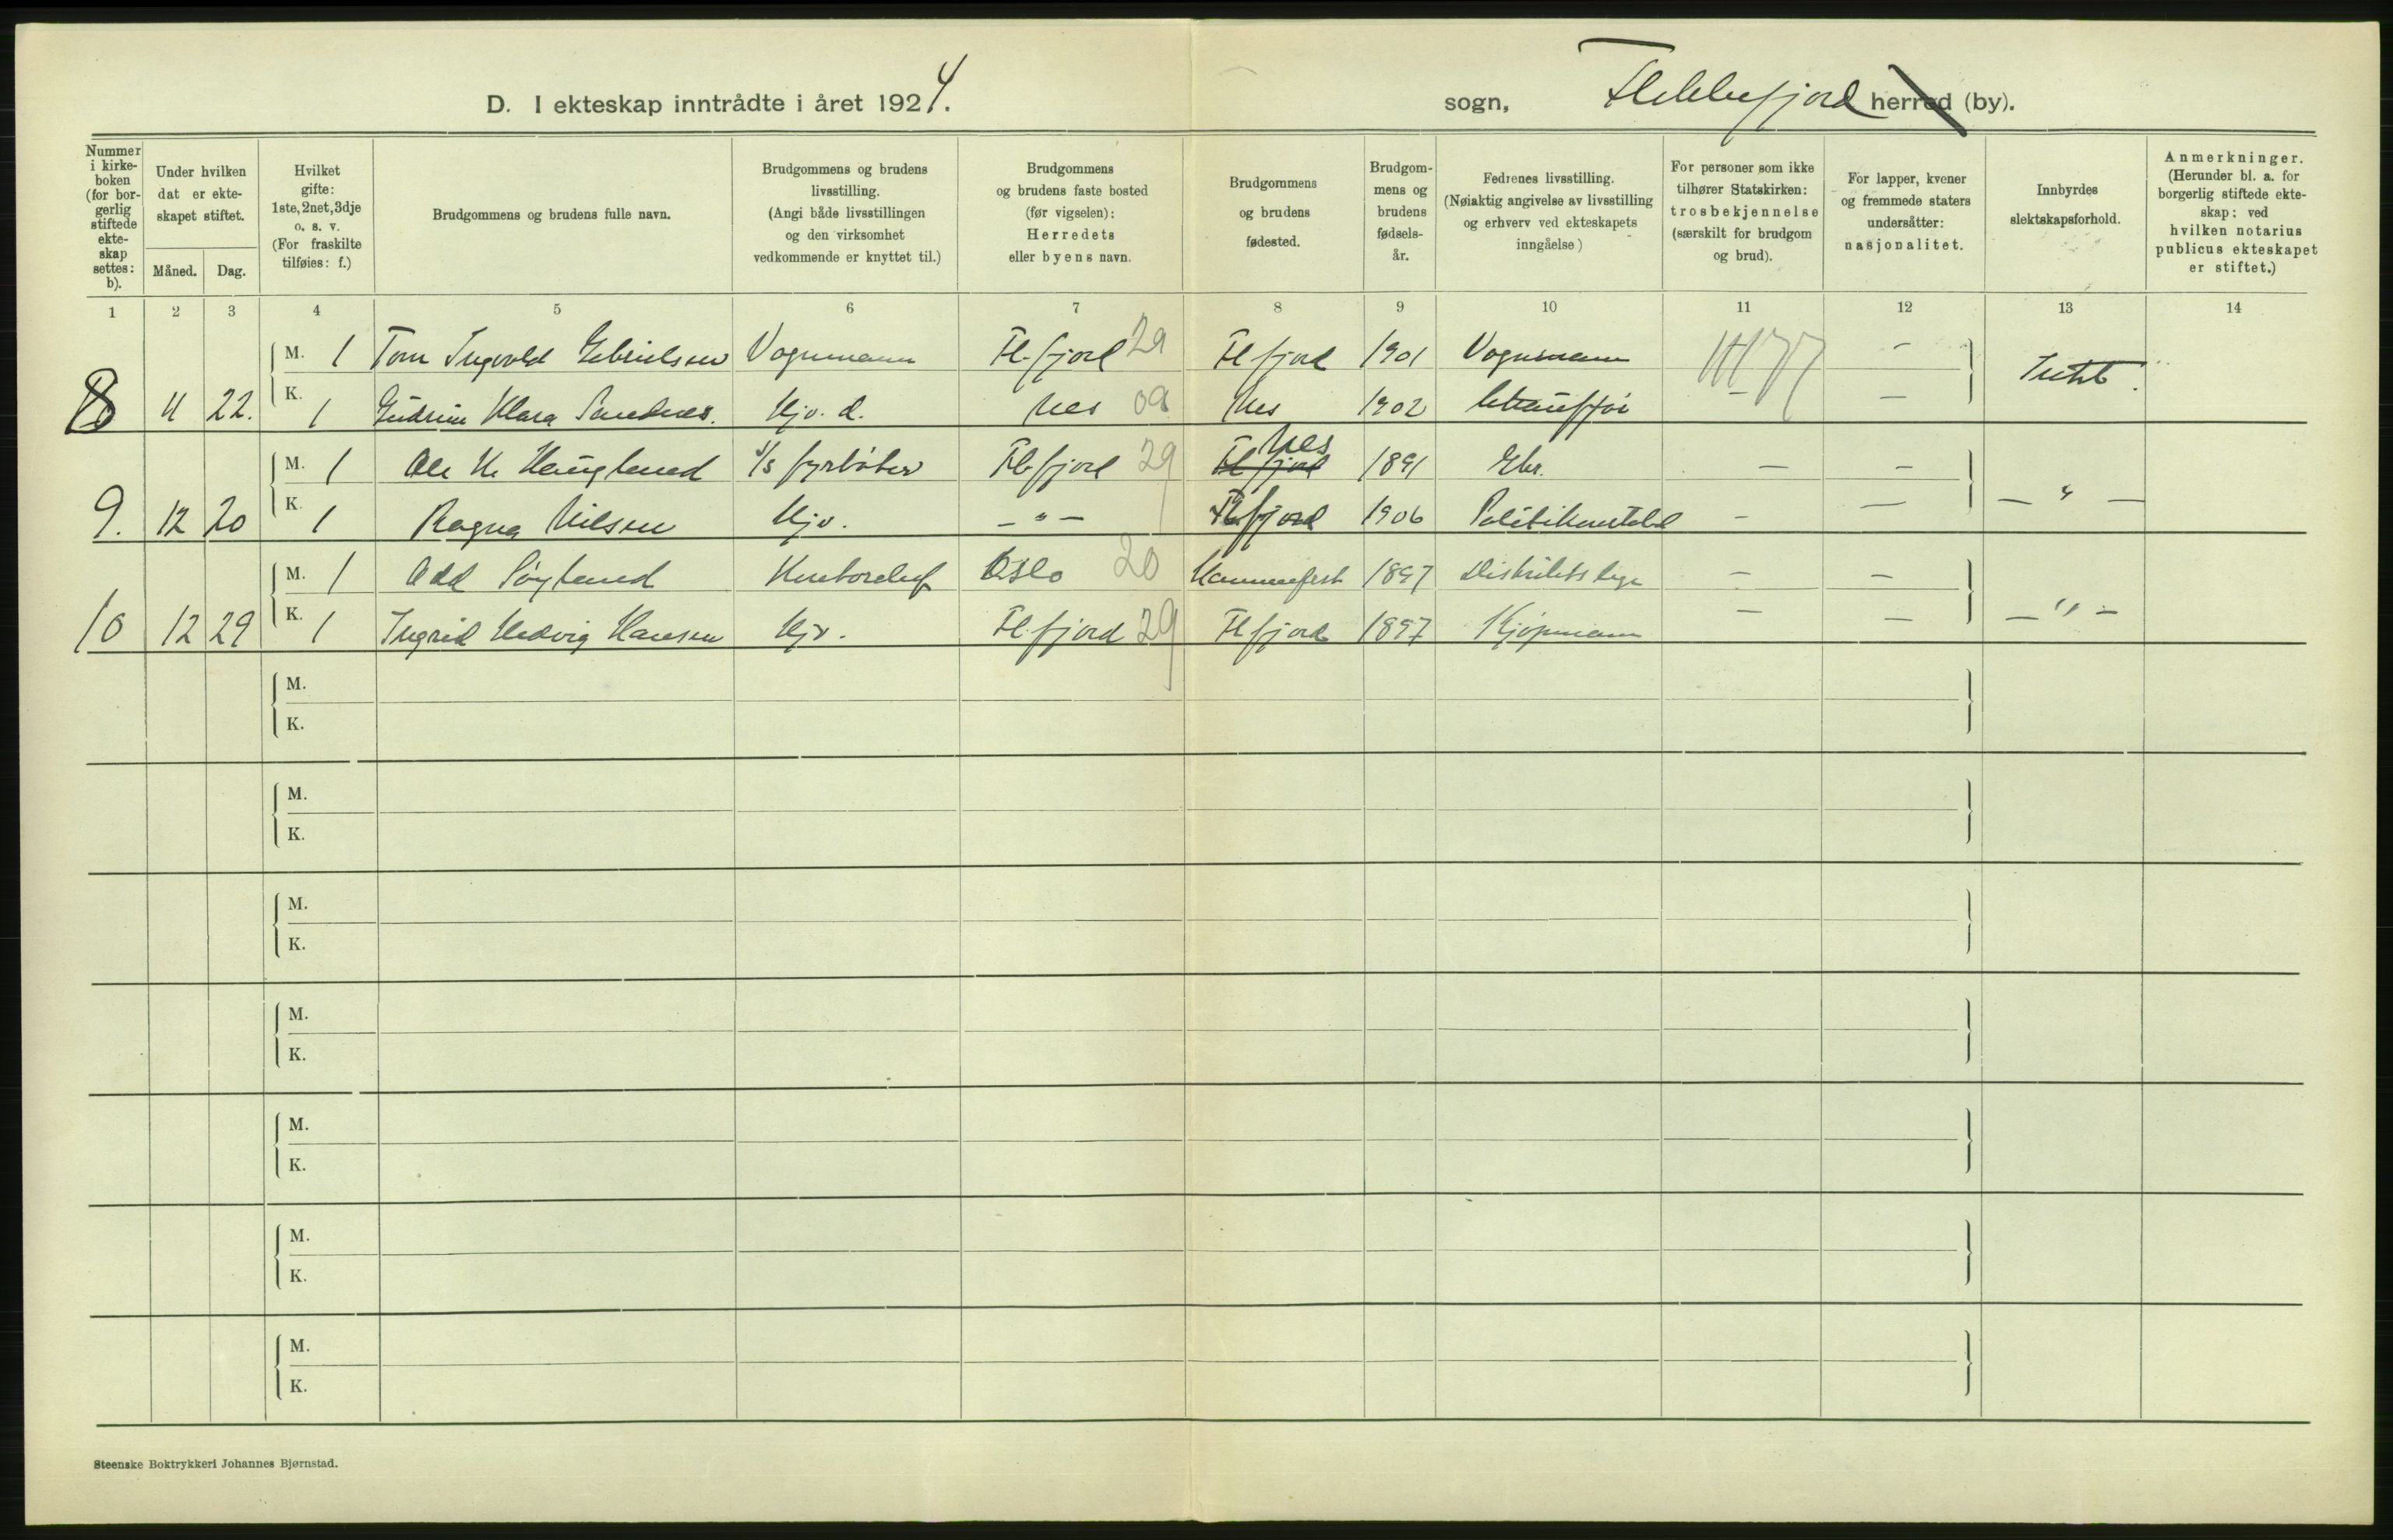 D. I ekteskap inntrådte i året 1924.
sogn, Flekkefjord herred (by).
Nummer i kirke-boken (for bor-gerlig stiftede ekte-skap settes: b).
Under hvilken dat er ekte-skapet stiftet.
Måned. Dag.
Hvilket gifte: 1ste, 2net, 3dje o. s. v. (For fraskilte tilføies: f.)
Brudgommens og brudens fulle navn.
Brudgommens og brudens livsstilling. (Angi både livsstillingen og den virksomhet vedkommende er knyttet til.)
Brudgommens og brudens faste bosted (før vigselen): Herredets eller byens navn.
Brudgommens og brudens fødested.
Brudgom-mens og brudens fødsels-år.
Fedrenes livsstilling. (Nøiaktig angivelse av livsstilling og erhverv ved ekteskapets inngåelse)
For personer som ikke tilhører Statskirken: trosbekjennelse (særskilt for brudgom og brud).
For lapper, kvener og fremmede staters undersåtter: nasjonalitet.
Innbyrdes slektskapsforhold.
Anmerkninger. (Herunder bl. a. for borgerlig stiftede ekte-skap: ved hvilken notarius publicus ekteskapet er stiftet.)
1 2 3 4 5 6 7 8 9 10 11 12 13 14
M. 1 Tom Ingvold Gabrielsen Vognmann Fl.fjord 29 Fl fjord 1901 Vognmann - Intet.
8 11 22. K. 1 Gudrun Klara Sandnes. Hjv. d. Nes 09 Nes 1902 - -
M. 1 Ole K. Haugland d/s fyrbøter Fl.fjord 29 Fl fjord Nes 1891 Gbr. - -
9. 12 20 K. 1 Ragna Nilsen Hjv. - " - Fl.fjord 1906 Politikonstabel - - - " -
M. 1 Odd Søyland Kontorchef Oslo 20 Hammerfest 1897 Distriktslege - -
10 12 29 K. 1 Ingrid Hedvig Hansen Hjv. Fl.fjord 29 Fl fjord 1897 Kjøpmann - - - " -
M.
K.
M.
K.
M.
K.
M.
K.
M.
K.
M.
K.
M.
K.
Steenske Boktrykkeri Johannes Bjørnstad.